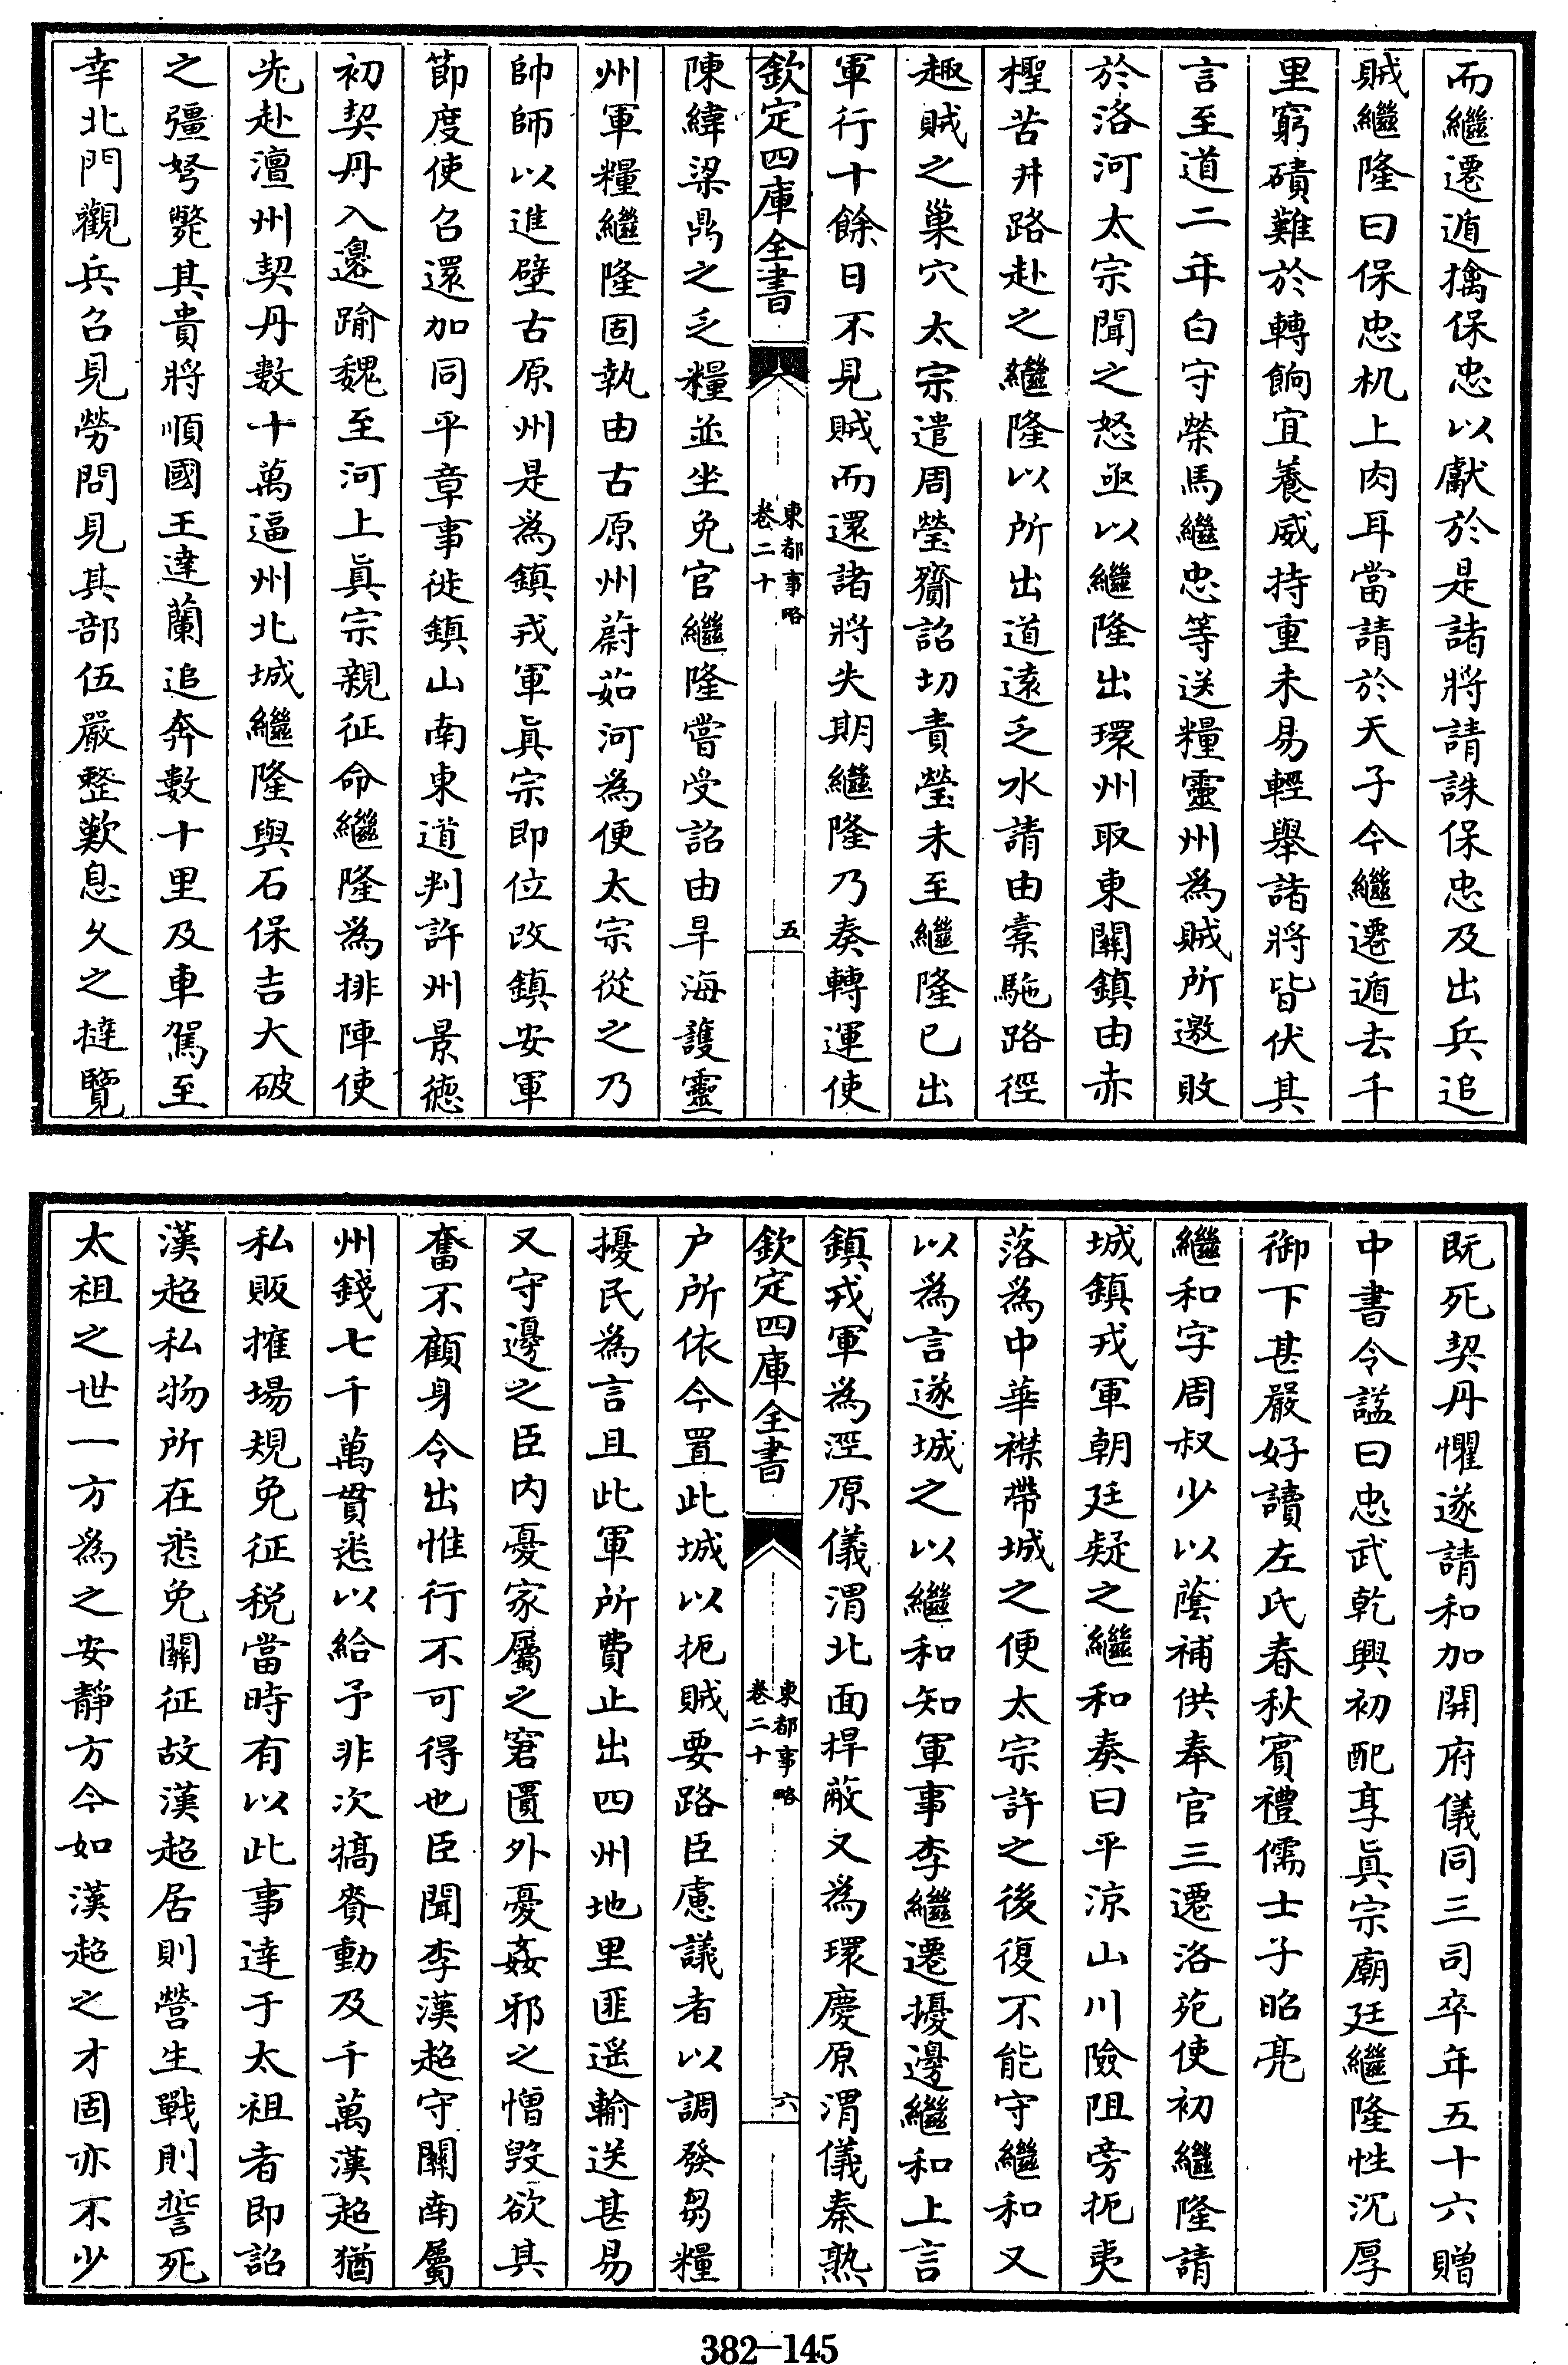 而繼遷遁擒保忠以獻於是諸將請誅保忠及出兵追
賊繼隆曰保忠机上肉耳當請於天子今繼遷遁去千
里窮磧難於轉餉宜養威持重未易輕舉諸將皆伏其
言至道二年白守榮馬繼忠等送糧靈州為賊所邀敗
於洛河太宗聞之怒亟以繼隆出環州取東關鎮由赤
檉苦井路赴之繼隆以所出道遠乏水請由橐駞路徑
趣賊之巢穴太宗遣周瑩齎詔切責瑩未至繼隆已出
軍行十餘日不見賊而還諸將失期繼隆乃奏轉運使
欽定四庫全書
東都事略
卷二十
五
陳緯梁鼎之乏糧並坐免官繼隆嘗受詔由旱海護靈
州軍糧繼隆固執由古原州蔚茹河為便太宗從之乃
帥師以進壁古原州是為鎮戎軍眞宗即位改鎮安軍
節度使召還加同平章事徙鎮山南東道判許州景德
初契丹入邊踰魏至河上眞宗親征命繼隆為排陣使
先赴澶州契丹數十萬逼州北城繼隆與石保吉大破
之彊弩斃其貴將順國王達蘭追奔數十里及車駕至
幸北門觀兵召見勞問見其部伍嚴整歎息久之撻覽
既死契丹懼遂請和加開府儀同三司卒年五十六贈
中書令諡曰忠武乾興初配享眞宗廟廷繼隆性沉厚
御下甚嚴好讀左氏春秋賓禮儒士子昭亮
繼和字周叔少以蔭補供奉官三遷洛苑使初繼隆請
城鎮戎軍朝廷疑之繼和奏曰平涼山川險阻旁扼夷
落為中華襟帶城之便太宗許之後復不能守繼和又
以為言遂城之以繼和知軍事李繼遷擾邊繼和上言
鎮戎軍為涇原儀渭北面捍蔽又為環慶原渭儀秦熟
欽定四庫全書
東都事略
卷二十
六
户所依今置此城以扼賊要路臣慮議者以調發芻糧
擾民為言且此軍所費止出四州地里匪遥輸送甚易
又守邊之臣内憂家屬之窘匱外憂姦邪之憎毀欲其
奮不顧身令出惟行不可得也臣聞李漢超守關南屬
州錢七千萬貫悉以給予非次犒賚動及千萬漢超猶
私販搉場規免征税當時有以此事達于太祖者即詔
漢超私物所在悉免關征故漢超居則營生戰則誓死
太祖之世一方為之安靜方今如漢超之才固亦不少
382-145